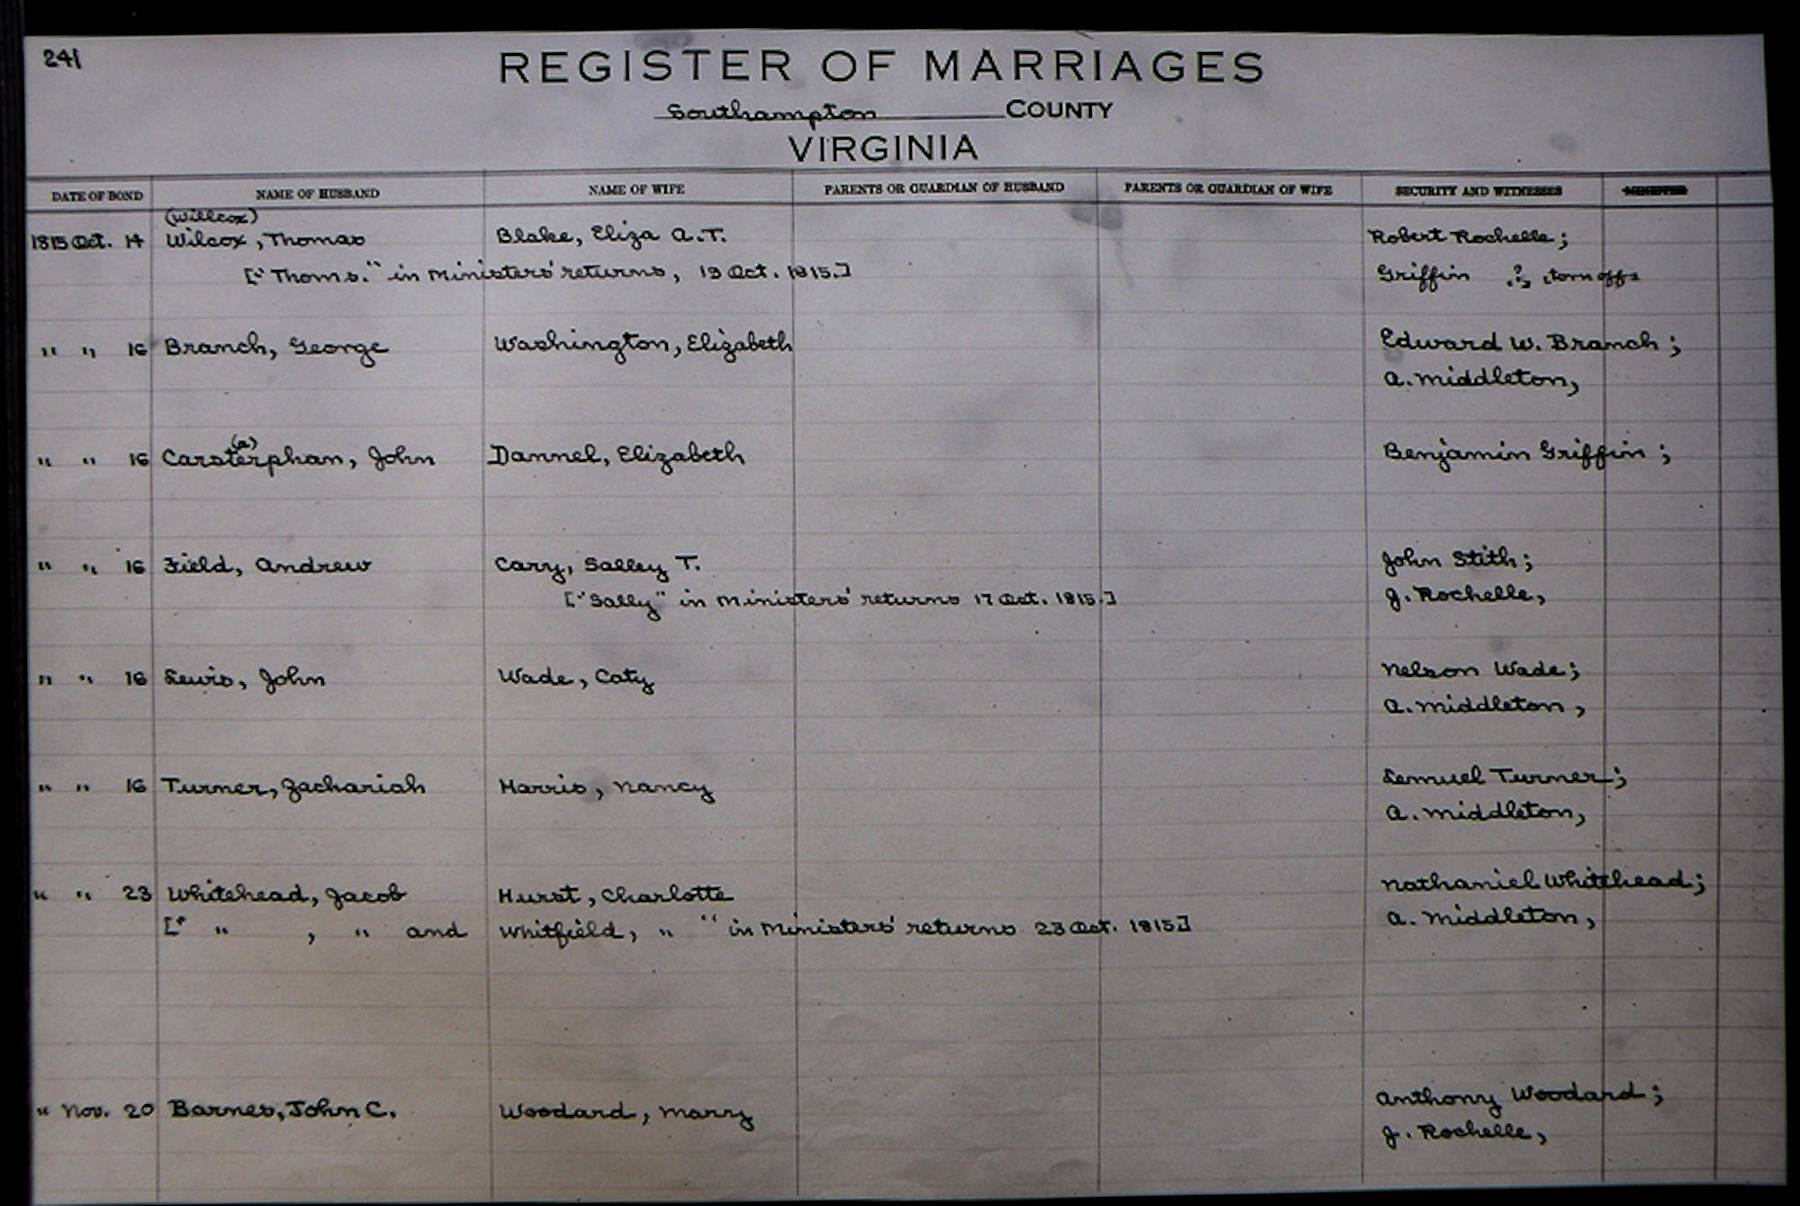 241
REGISTER OF MARRIAGES
Southampton COUNTY
VIRGINIA
DATE OF BOND NAME OF HUSBAND NAME OF WIFE PARENTS OR GUARDIAN OF HUSBAND PARENTS OR GUARDIAN OF WIFE SECURITY AND WITNESSES MINISTER
(Willcox)
1815 Oct. 14 Wilcox, Thomas Blake, Eliza A.T. Robert Rochelle;
["Thoms." in Ministers' returns, 19 Oct. 1815.] Griffin ?, torn off
" " 16 Branch, George Washington, Elizabeth Edward W. Branch;
A. Middleton,
(a)
" " 16 Carsterphan, John Dannel, Elizabeth Benjamin Griffin;
" " 16 Field, Andrew Cary, Salley T. John Stith;
["Sally" in Ministers' returns 17 Oct. 1815.] J. Rochelle,
" " 16 Lewis, John Wade, Caty Nelson Wade;
A. Middleton,
" " 16 Turner, Zachariah Harris, Nancy Lemuel Turner;
A. Middleton,
" " 23 Whitehead, Jacob Hurst, Charlotte Nathaniel Whitehead;
[" " , " and Whitfield, " " in Ministers' returns 23 Oct. 1815] A. Middleton,
" Nov. 20 Barnes, John C. Woodard, Marry Anthony Woodard;
J. Rochelle,